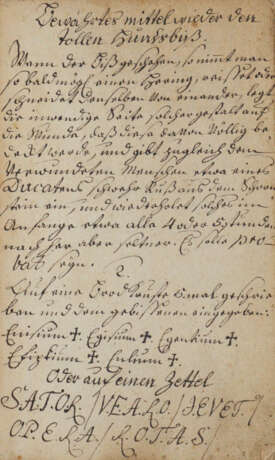 Bewährtes mittel wieder den
tollen Hundsbiß.
Wann der Biß geschehen, so nimt man
so bald mögl. einen Hering, reisset oder
schneidet denselben von einander, legt
die inwendige Seite solcher gestalt auf
die Wunde, daß diese davon völlig be-
deckt werde, und gibt zugleich dem
Verwundeten Menschen etwa eines
Ducatens schwehr Ruß aus dem Schorn-
stein ein, und wiederholet solches im
Anfange etwa alle 4 oder 5 Stunden
nach her aber seltner. Es solle pro-
bat seyn.
2.
Auf eine Brodkruste 6. mal geschrie-
ben und dem gebissenen eingegeben:
Enisium ✝. Egisium ✝. Egenkium ✝.
Efizkium ✝. Enlum ✝.
Oder auf einen Zettel
S.A.T.O.R. / V.E.A.R.O. / J.E.V.E.T. /
O.P.E.R.A. / R.O.T.A.S. /